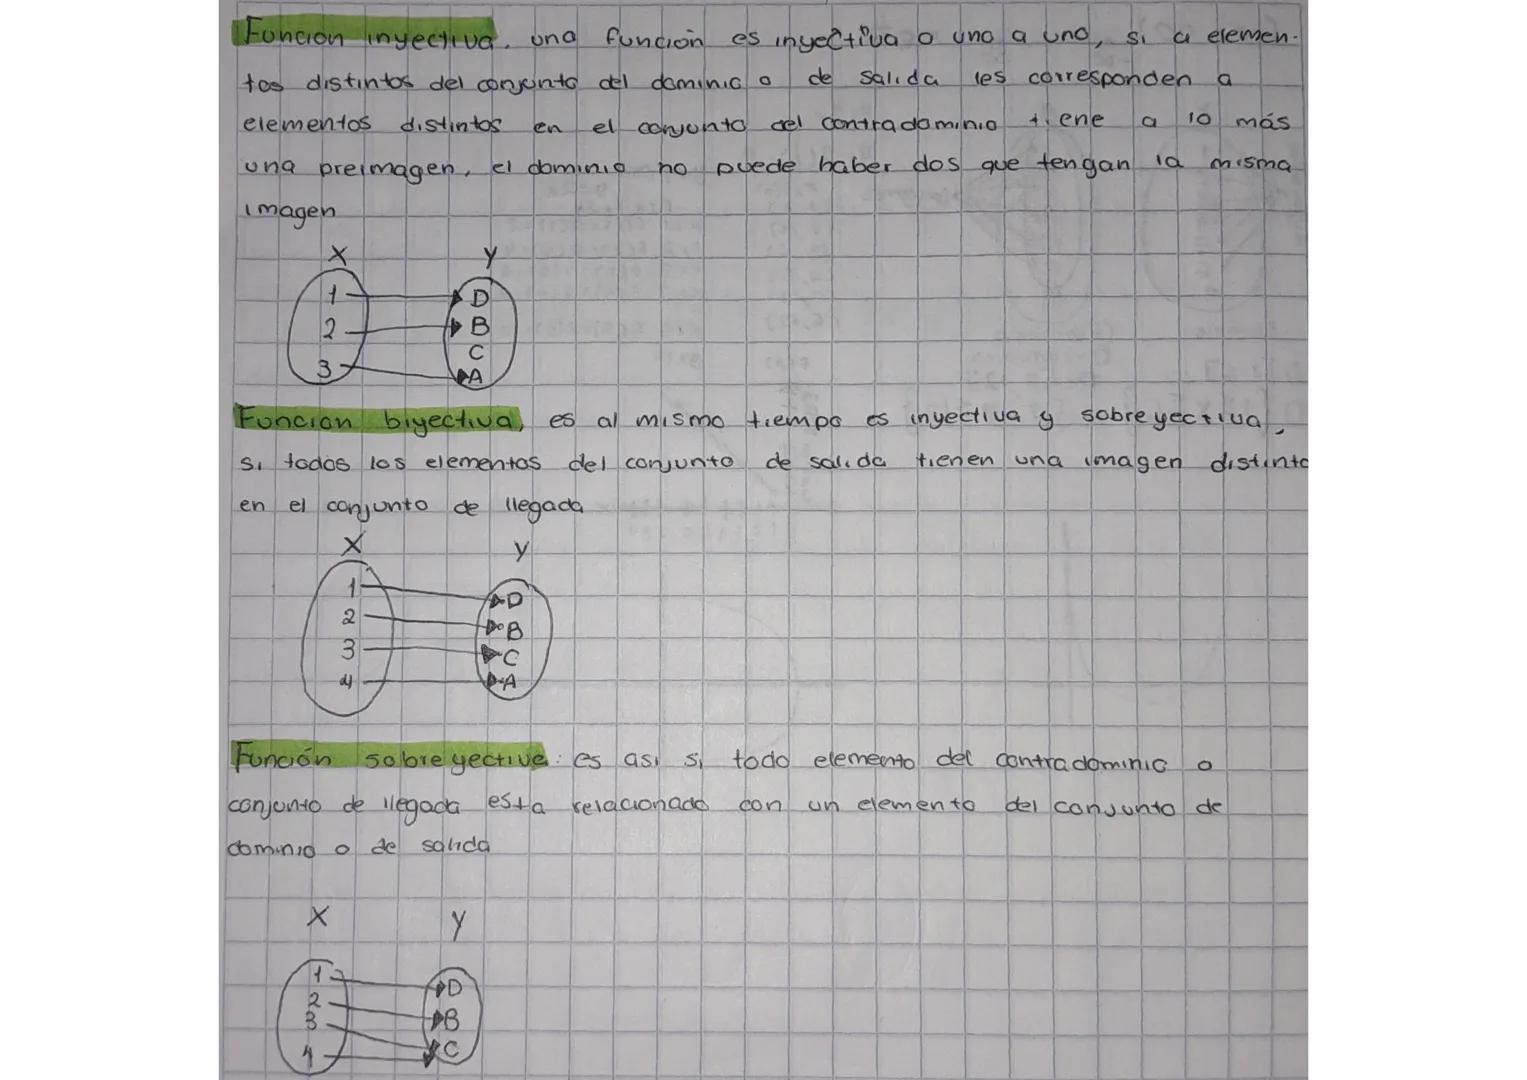 Función inyectiva. una función es inyectiva o uno a uno, si a elemen-
tos distintos del conjunto del dominio o de salida les corresponden a
elementos distintos en el conjunto del contradominio tiene a lo más
una preimagen, el dominio no puede haber dos que tengan la misma
imagen
X Y
1 D
2 B
C
3 A
Funcion biyectiva, es al mismo tiempo es inyectiva y sobreyectiva,
si todos los elementos del conjunto de salida tienen una imagen distinta
en el conjunto de llegada
X Y
1 D
2 B
3 C
4 A
Función sobreyectiva: es asi si todo elemento del contradominio o
conjunto de llegada esta relacionado con un elemento del conjunto de
dominio o de salida
X Y
1 D
2 B
3 C
4